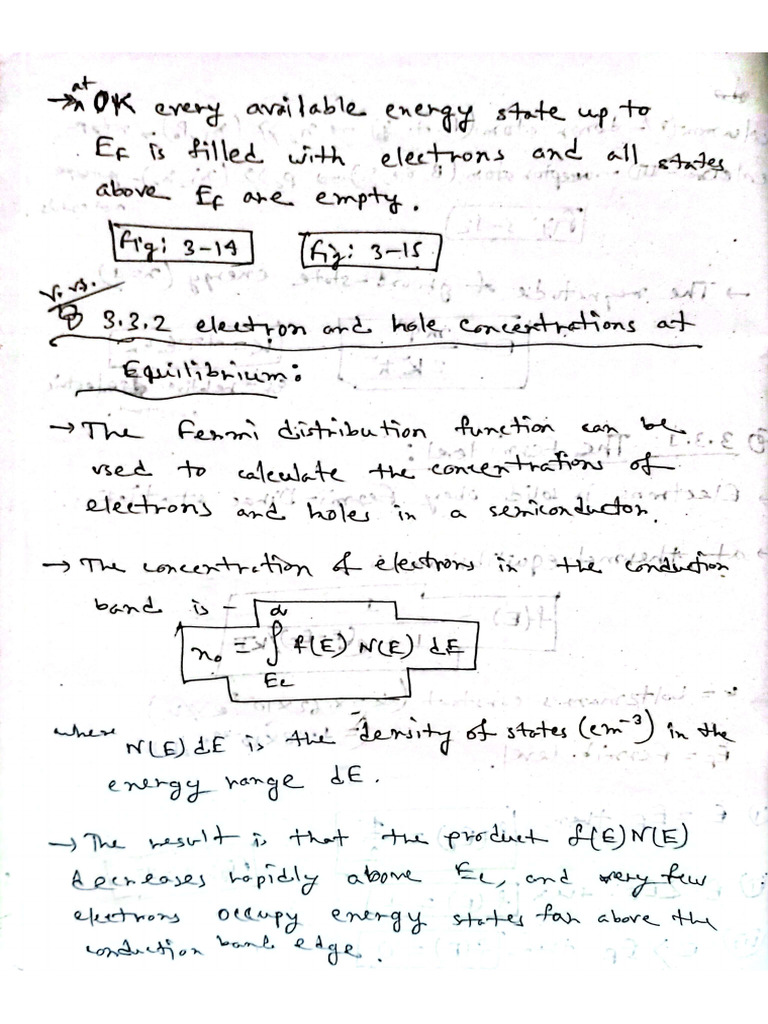 → at 0K every available energy state up to
EF is filled with electrons and all states
above EF are empty.
Fig: 3-14 Fig: 3-15
V.V.
3.3.2 electron and hole concentrations at
Equilibrium:
→ The Fermi distribution function can be
used to calculate the concentrations of
electrons and holes in a semiconductor.
→ The concentration of electrons in the conduction
band is -
n₀ = ∫_{Ec}^{α} f(E) N(E) dE
where N(E) dE is the density of states (cm⁻³) in the
energy range dE.
→ The result is that the product f(E)N(E)
decreases rapidly above Ec, and very few
electrons occupy energy states far above the
conduction band edge.